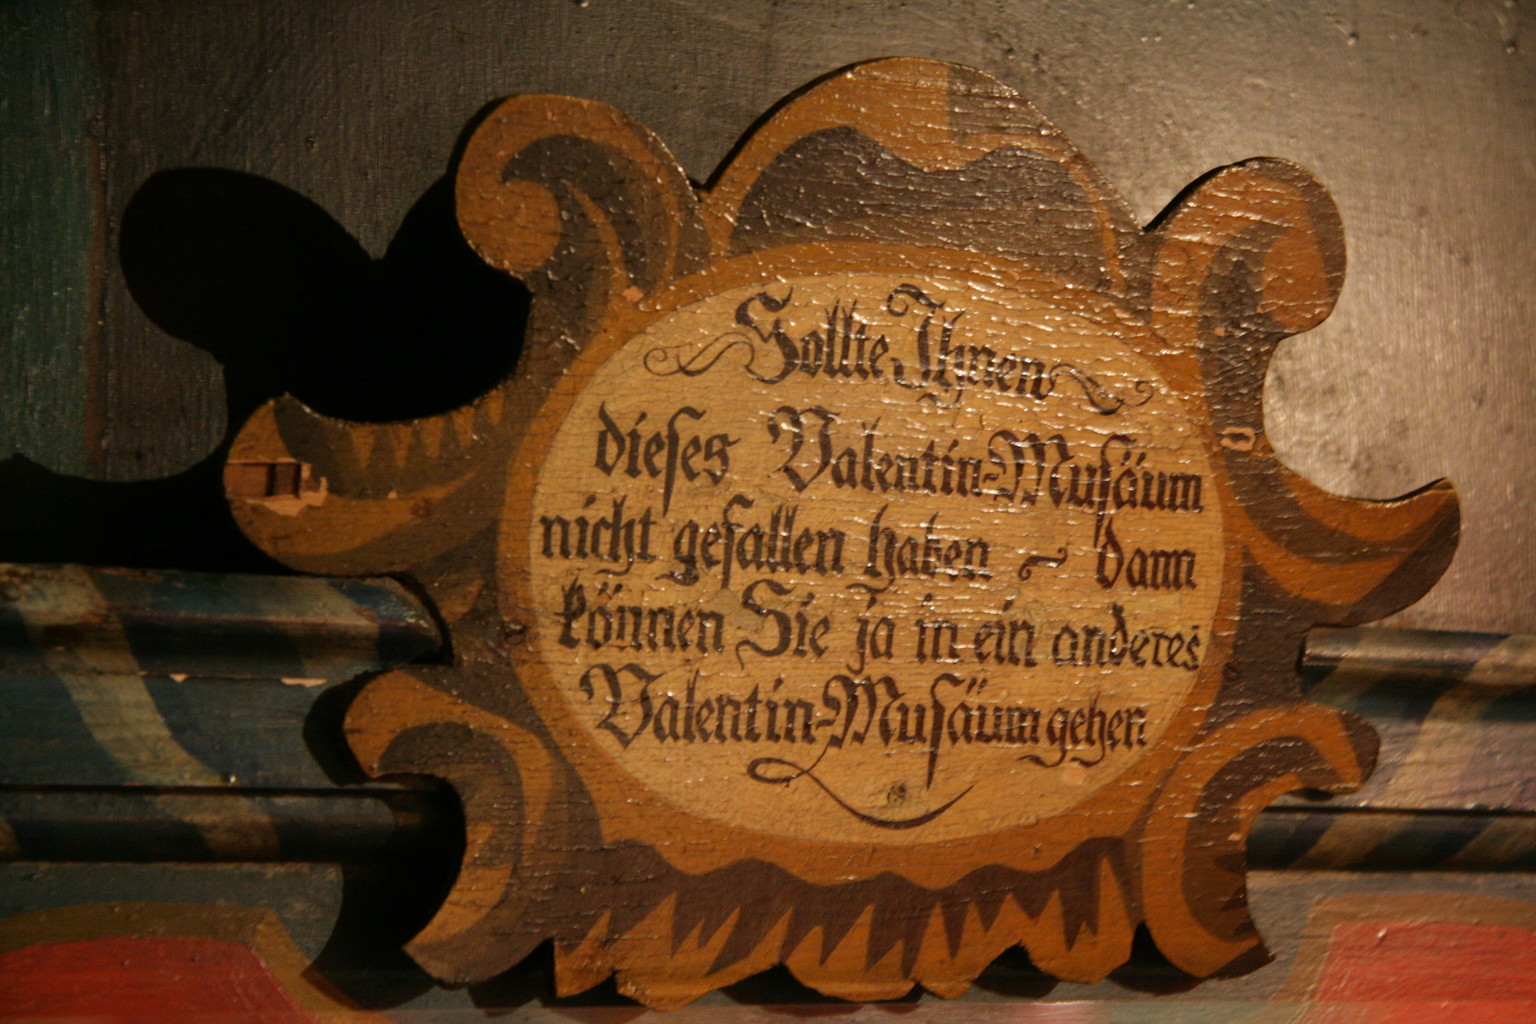 Sollte Ihnen
dieses Valentin-Musäum
nicht gefallen haben ~ dann
können Sie ja in ein anderes
Valentin-Musäum gehen